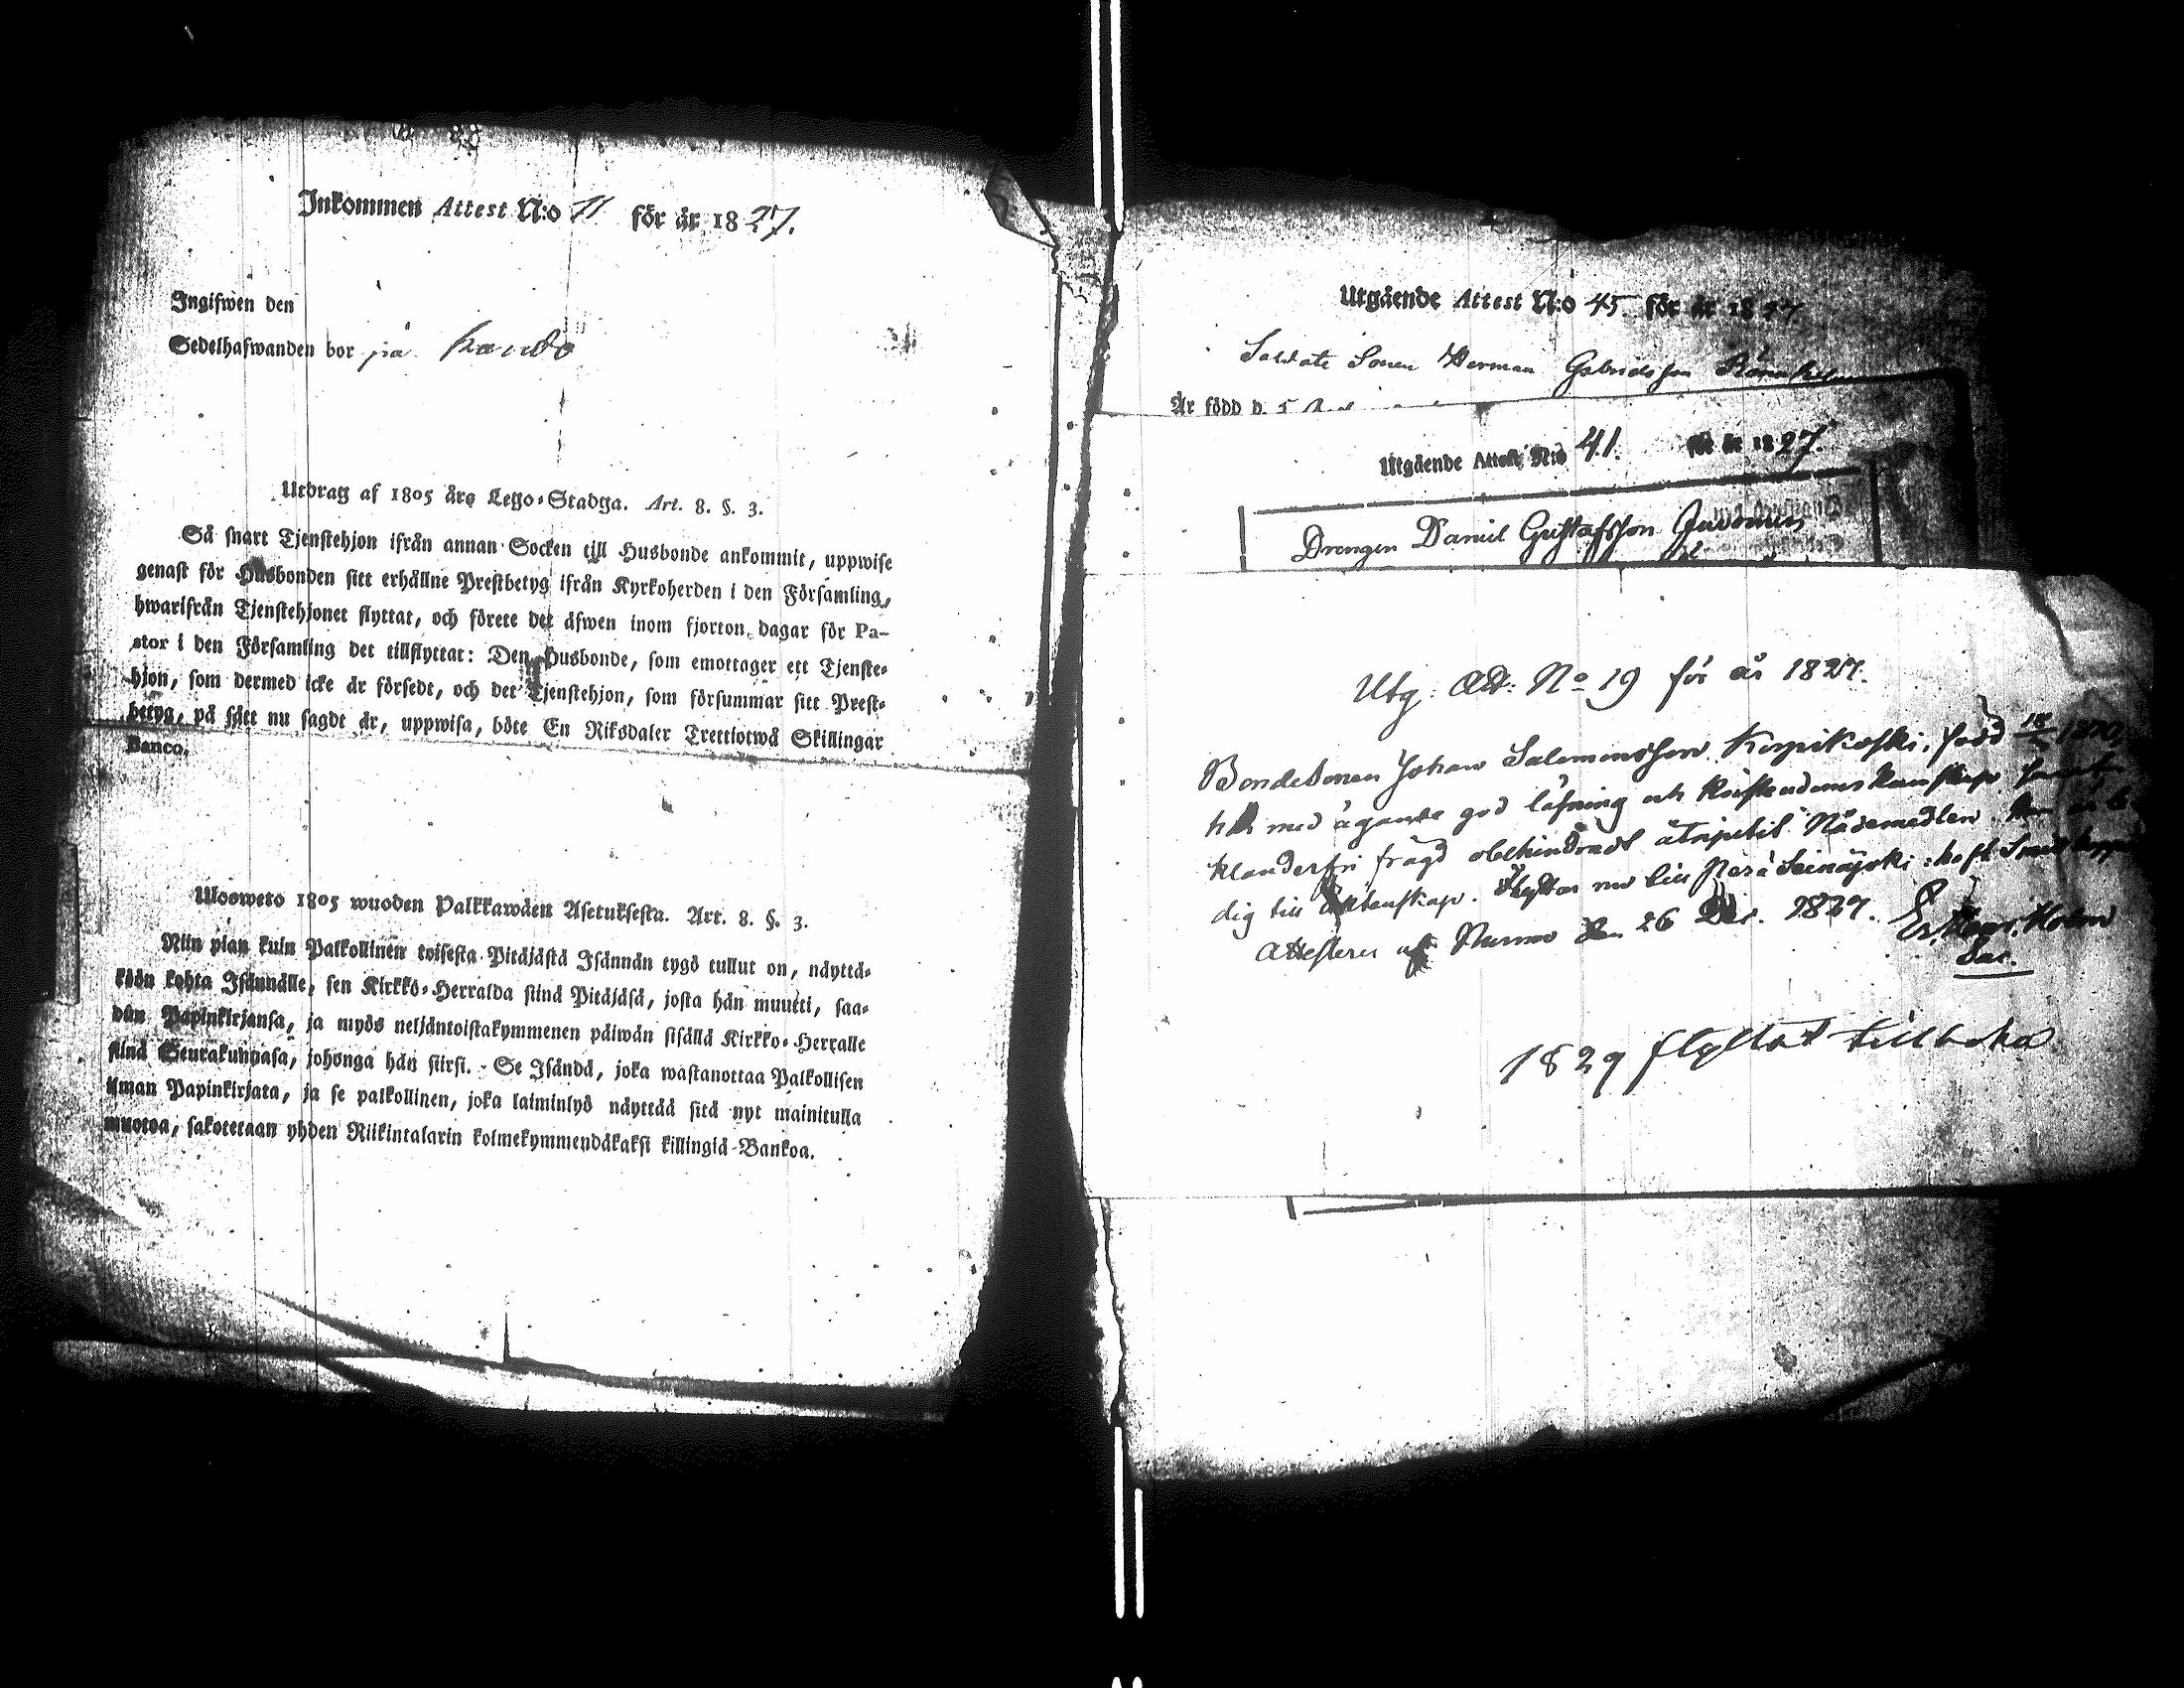 Inkommen Attest N:o 71 för år 1827.
Ingifwen den
Sedelhafwanden bor på
Utdrag af 1805 års Lego-Stadga. Art. 8. §. 3.
Så snart Tjenstehjon ifrån annan Socken till Husbonde ankommit, uppwise
genast för Husbonden sitt erhållne Prestbetyg ifrån Kyrkoherden i den Församling,
hwarifrån Tjenstehjonet flyttat, och förete det äfwen inom fjorton dagar för Pa-
stor i den Församling det tillflyttat: Den Husbonde, som emottager ett Tjenste-
hjon, som dermed icke är försedt, och det Tjenstehjon, som försummar sitt Prest-
betyg, på sätt nu sagdt är, uppwisa, böte En Riksdaler Trettiotwå Skillingar
Banco.
Ulosweto 1805 wuoden Palkkawäen Asetuksesta. Art. 8. §. 3.
Niin pian kuin Palkollinen toisesta Pitäjästä Isännän tygö tullut on, näyttä-
köön kohta Isännälle, sen Kirkko-Herralda siinä Pitäjäsä, josta hän muutti, saa-
dun Papinkirjansa, ja myös neljäntoistakymmenen päiwän sisällä Kirkko-Herralle
siinä Seurakunnasa, johonga hän siirsi. - Se Isändä, joka wastanottaa Palkollisen
ilman Papinkirjata, ja se palkollinen, joka laiminlyö näyttää sitä nyt mainitulla
muotoa, sakotetaan yhden Riikintalarin kolmekymmendäkaksi killingiä Bankoa.
Utgående Attest N:o 45 för år 1827.
Soldate Sonen Herman Gabrielsson
Är född d. 5
Utgående Attest N:o 41. för år 1827.
Drengen Daniel Gustafsson
Utg. Att: No 19 för år 1827.
BondeSonen Johan Salomonsson född
med ägande god läsning och kristendoms kunskap
klanderfri frägd obehindradt åtnjutit Nådemedlen. Han är
dig till Äktenskap. Flyttar nu till Seinäjoki
Attesterar af Nurmo den 26 Dec. 1827.
Sac.
1829 flyttat tillbaka